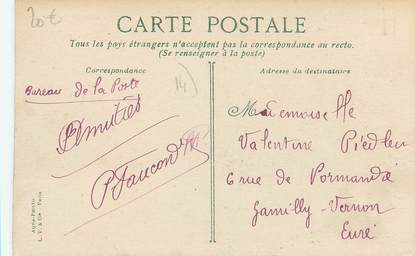 20€
CARTE POSTALE
Tous les pays étrangers n'acceptent pas la correspondance au recto.
(Se renseigner à la poste)
Correspondance
Adresse du destinataire
14
Bureau de la Poste
Amitiés
P Faucon
Mademoiselle
Valentine Piedleu
6 rue de Normandie
Gamilly-Vernon
Eure
L. V. & Cie Paris